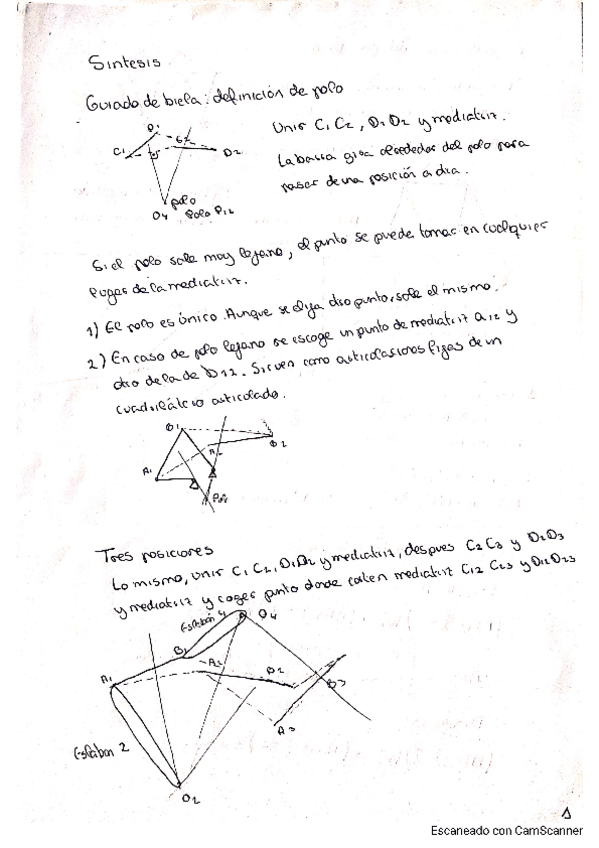 Sintesis
Guiado de biela: definición de polo
D1
C1
C2
D2
Polo
O4 Polo P12
Unir C1C2, D1D2 y mediatriz.
La barra gira alrededor del polo para
pasar de una posición a otra.
Si el polo sale muy lejano, el punto se puede tomar en cualquier
lugar de la mediatriz.
1) El polo es único. Aunque se elija otro punto, sale el mismo.
2) En caso de polo lejano se escoge un punto de mediatriz a12 y
otro de la de b12. Sirven como articulaciones fijas de un
cuadrilátero articulado.
B1
B2
A1
P12
Tres posiciones
Lo mismo, unir C1C2, D1D2 y mediatriz, despues C2C3 y D2D3
y mediatriz y coger punto donde corten mediatriz C12 C23 y D12 D23
Eslabón 4
O4
B1
A1
A2
B2
B3
A3
Eslabon 2
O2
1
Escaneado con CamScanner